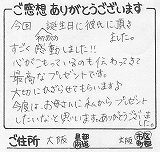 ご感想 ありがとうございます
今回、誕生日に彼氏に頂き
初めて ました。
すごく感動しました!!
心がこもっているのも伝わってきて
最高なプレゼントです。
大切に使わさせてもらいます
今度はお母さんに私からプレゼント
したいなと思います。ありがとうございました。
ご住所 大阪 都道府県 大阪 市区町村